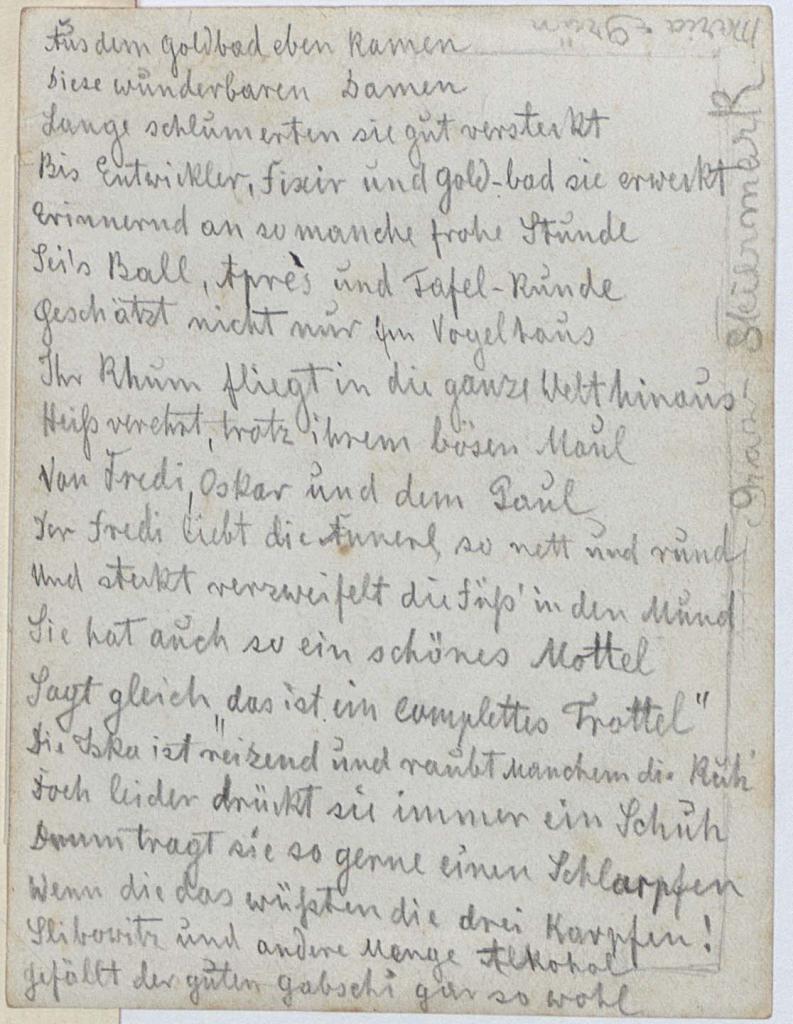 Aus dem goldbad eben kamen
Diese wunderbaren Damen
Lange schlumerten sie gut versteckt
Bis Entwickler, Fixir und gold-bad sie erweckt
Erinnernd an so manche frohe Stunde
Sei's Ball, Après und Tafel-Runde
Geschätzt nicht nur im Vogelhaus
Ihr Rhum fliegt in die ganze Welt hinaus
Heiß verehrt, trotz ihrem bösen Maul
Von Fredi, Oskar und dem Paul
Der Fredi liebt die Annerl, so nett und rund
Und steckt verzweifelt die Füß' in den Mund
Sie hat auch so ein schönes Mottel
Sagt gleich "das ist ein complettes Trottel"
Die Iska ist reizend und raubt Manchem die Ruh'
Doch leider drückt sie immer ein Schuh
Drum tragt sie so gerne einen Schlarpfen
Wenn die das wüßten die drei Karpfen!
Slibowitz und andere Menge Alkohol
gefällt der guten Gabschi gar so wohl
Maria-Grün
Graz- Steiermark